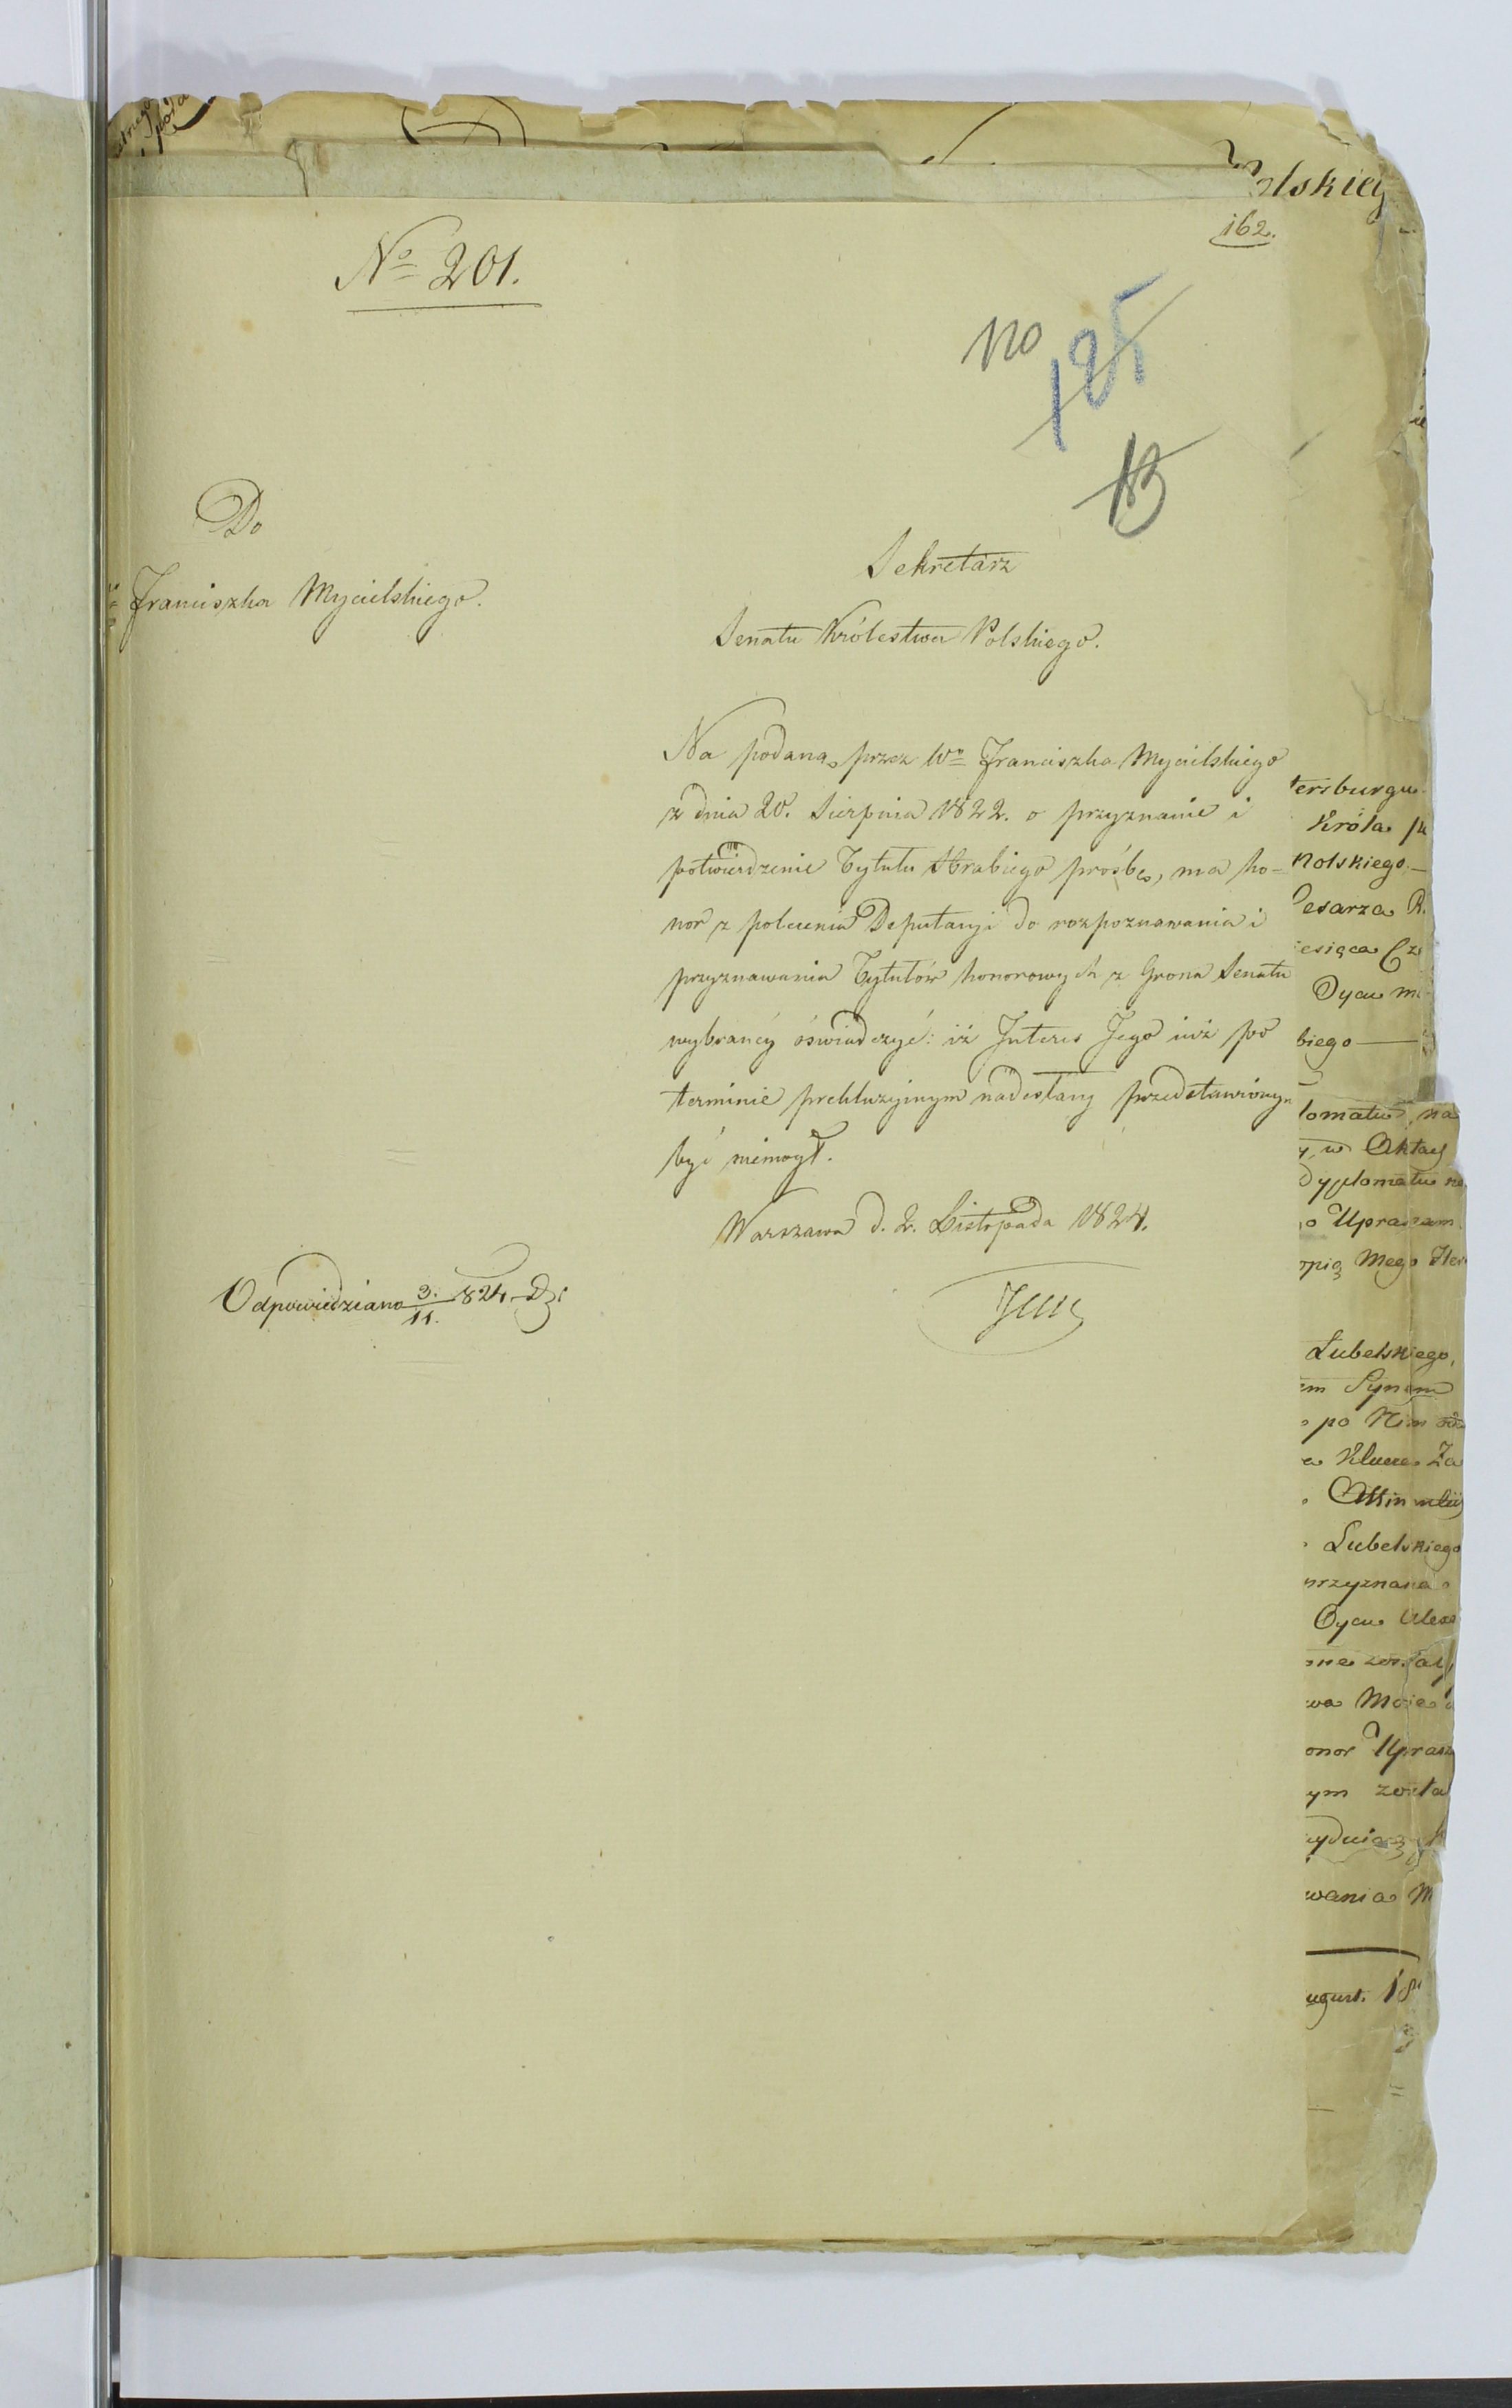 162.
No 201.
110
125
113
Do
Franciszka Mycielskiego.
Sekretarz
Senatu Królestwa Polskiego.
Na podaną przez Wo Franciszka Mycielskiego
z dnia 20. Sierpnia 1822. o przyznanie i
potwierdzenie Tytułu Hrabiego prośbę, ma ho-
nor z polecenia Deputacyi do rozpoznawania i
przyznawania Tytułów honorowych z Grona Senatu
wybranéy óświadczyć: iż Interes Jego iuż po
terminie prekluzyinym nadesłany przedstawionym
być niemógł.
Warszawa d. 2. Listopada 1824.
Odpowiedziano 3./11. 824
tersburgu
Króla
Polskiego —
iesiąca
Oycu
biego —
w Aktach
Dyplomatu
Mego
Lubelskiego,
Synem
po Nim
Klucze Za
Lubelskiego
przyznana
Oycu Alexa
Moie
onor Uprasz
ym zosta
wania
ugust. 18